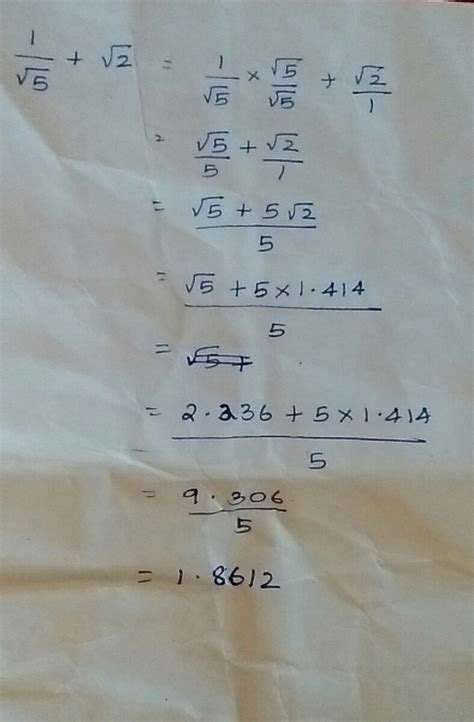 1/√5 + √2 = 1/√5 × √5/√5 + √2/1
= √5/5 + √2/1
= (√5 + 5√2)/5
= (√5 + 5×1.414)/5
= √5 +
= (2.236 + 5×1.414)/5
= 9.306/5
= 1.8612